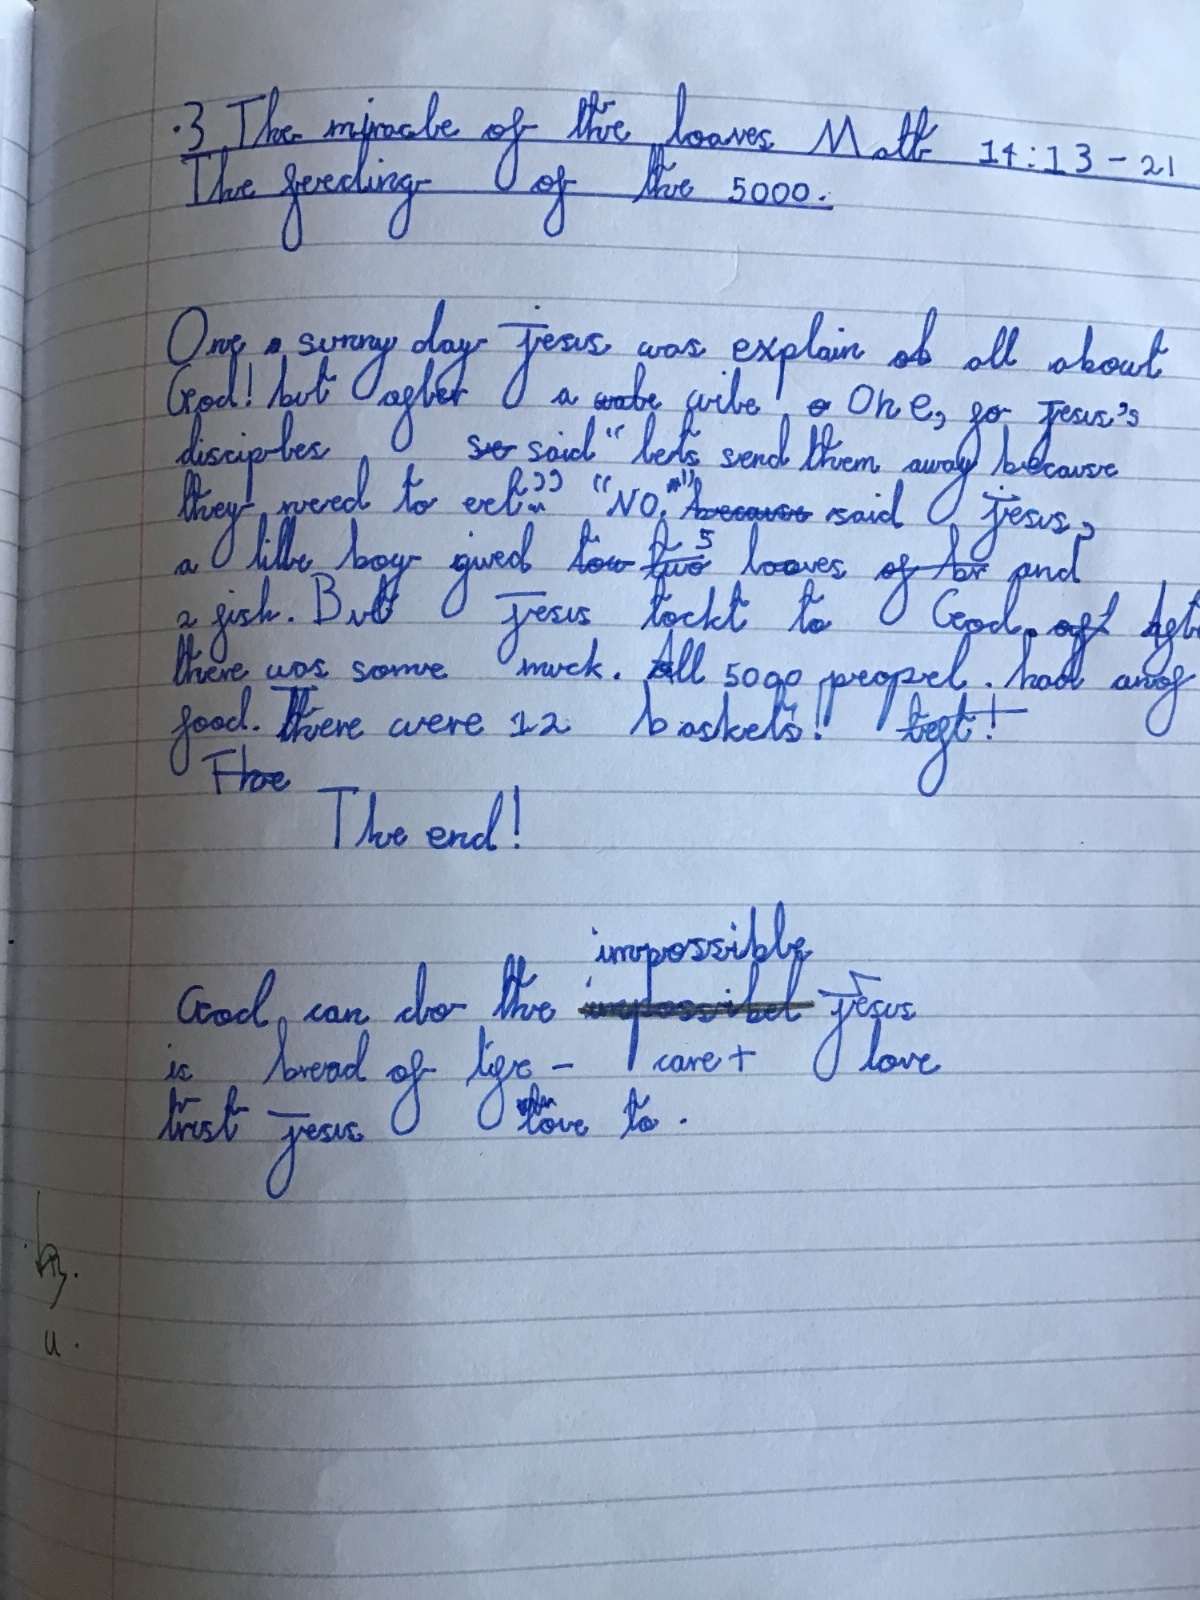 .3 The miracle of the loaves Matt 14:13-21
The feeding of the 5000.
One sunny day jesus was explain all about
God! but after a wibe One, so jesus's
disciples said "lets send them away because
they need to eet." "NO." said jesus,
a litte boy gived 5 loaves and
2 fish. But jesus tockt to God.
there was some muck. All 5000 peopel. had
food. There were 12 baskets! left!
The
The end!
impossible
God can do the impossibel jesus
is bread of life - care + love
trust jesus love to.